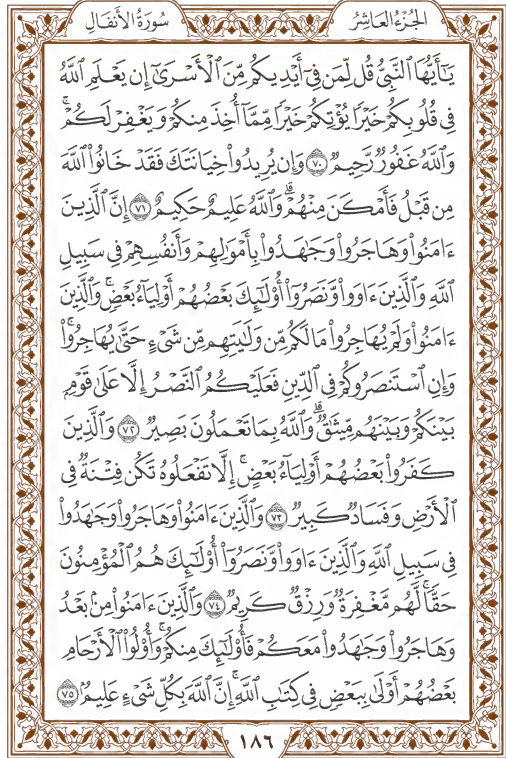 الجُزْءُ العَاشِرُ
سُورَةُ الأَنفَالِ
يَٰٓأَيُّهَا ٱلنَّبِىُّ قُل لِّمَن فِىٓ أَيْدِيكُم مِّنَ ٱلْأَسْرَىٰٓ إِن يَعْلَمِ ٱللَّهُ
فِى قُلُوبِكُمْ خَيْرًا يُؤْتِكُمْ خَيْرًا مِّمَّآ أُخِذَ مِنكُمْ وَيَغْفِرْ لَكُمْ ۗ
وَٱللَّهُ غَفُورٌ رَّحِيمٌ ٧٠ وَإِن يُرِيدُوا۟ خِيَانَتَكَ فَقَدْ خَانُوا۟ ٱللَّهَ
مِن قَبْلُ فَأَمْكَنَ مِنْهُمْ ۗ وَٱللَّهُ عَلِيمٌ حَكِيمٌ ٧١ إِنَّ ٱلَّذِينَ
ءَامَنُوا۟ وَهَاجَرُوا۟ وَجَٰهَدُوا۟ بِأَمْوَٰلِهِمْ وَأَنفُسِهِمْ فِى سَبِيلِ
ٱللَّهِ وَٱلَّذِينَ ءَاوَوا۟ وَّنَصَرُوٓا۟ أُو۟لَٰٓئِكَ بَعْضُهُمْ أَوْلِيَآءُ بَعْضٍ ۚ وَٱلَّذِينَ
ءَامَنُوا۟ وَلَمْ يُهَاجِرُوا۟ مَا لَكُم مِّن وَلَٰيَتِهِم مِّن شَىْءٍ حَتَّىٰ يُهَاجِرُوا۟ ۚ
وَإِنِ ٱسْتَنصَرُوكُمْ فِى ٱلدِّينِ فَعَلَيْكُمُ ٱلنَّصْرُ إِلَّا عَلَىٰ قَوْمٍۭ
بَيْنَكُمْ وَبَيْنَهُم مِّيثَٰقٌ ۗ وَٱللَّهُ بِمَا تَعْمَلُونَ بَصِيرٌ ٧٢ وَٱلَّذِينَ
كَفَرُوا۟ بَعْضُهُمْ أَوْلِيَآءُ بَعْضٍ ۚ إِلَّا تَفْعَلُوهُ تَكُن فِتْنَةٌ فِى
ٱلْأَرْضِ وَفَسَادٌ كَبِيرٌ ٧٣ وَٱلَّذِينَ ءَامَنُوا۟ وَهَاجَرُوا۟ وَجَٰهَدُوا۟
فِى سَبِيلِ ٱللَّهِ وَٱلَّذِينَ ءَاوَوا۟ وَّنَصَرُوٓا۟ أُو۟لَٰٓئِكَ هُمُ ٱلْمُؤْمِنُونَ
حَقًّا ۚ لَّهُم مَّغْفِرَةٌ وَرِزْقٌ كَرِيمٌ ٧٤ وَٱلَّذِينَ ءَامَنُوا۟ مِنۢ بَعْدُ
وَهَاجَرُوا۟ وَجَٰهَدُوا۟ مَعَكُمْ فَأُو۟لَٰٓئِكَ مِنكُمْ ۚ وَأُو۟لُوا۟ ٱلْأَرْحَامِ
بَعْضُهُمْ أَوْلَىٰ بِبَعْضٍ فِى كِتَٰبِ ٱللَّهِ ۗ إِنَّ ٱللَّهَ بِكُلِّ شَىْءٍ عَلِيمٌۢ ٧٥
١٨٦